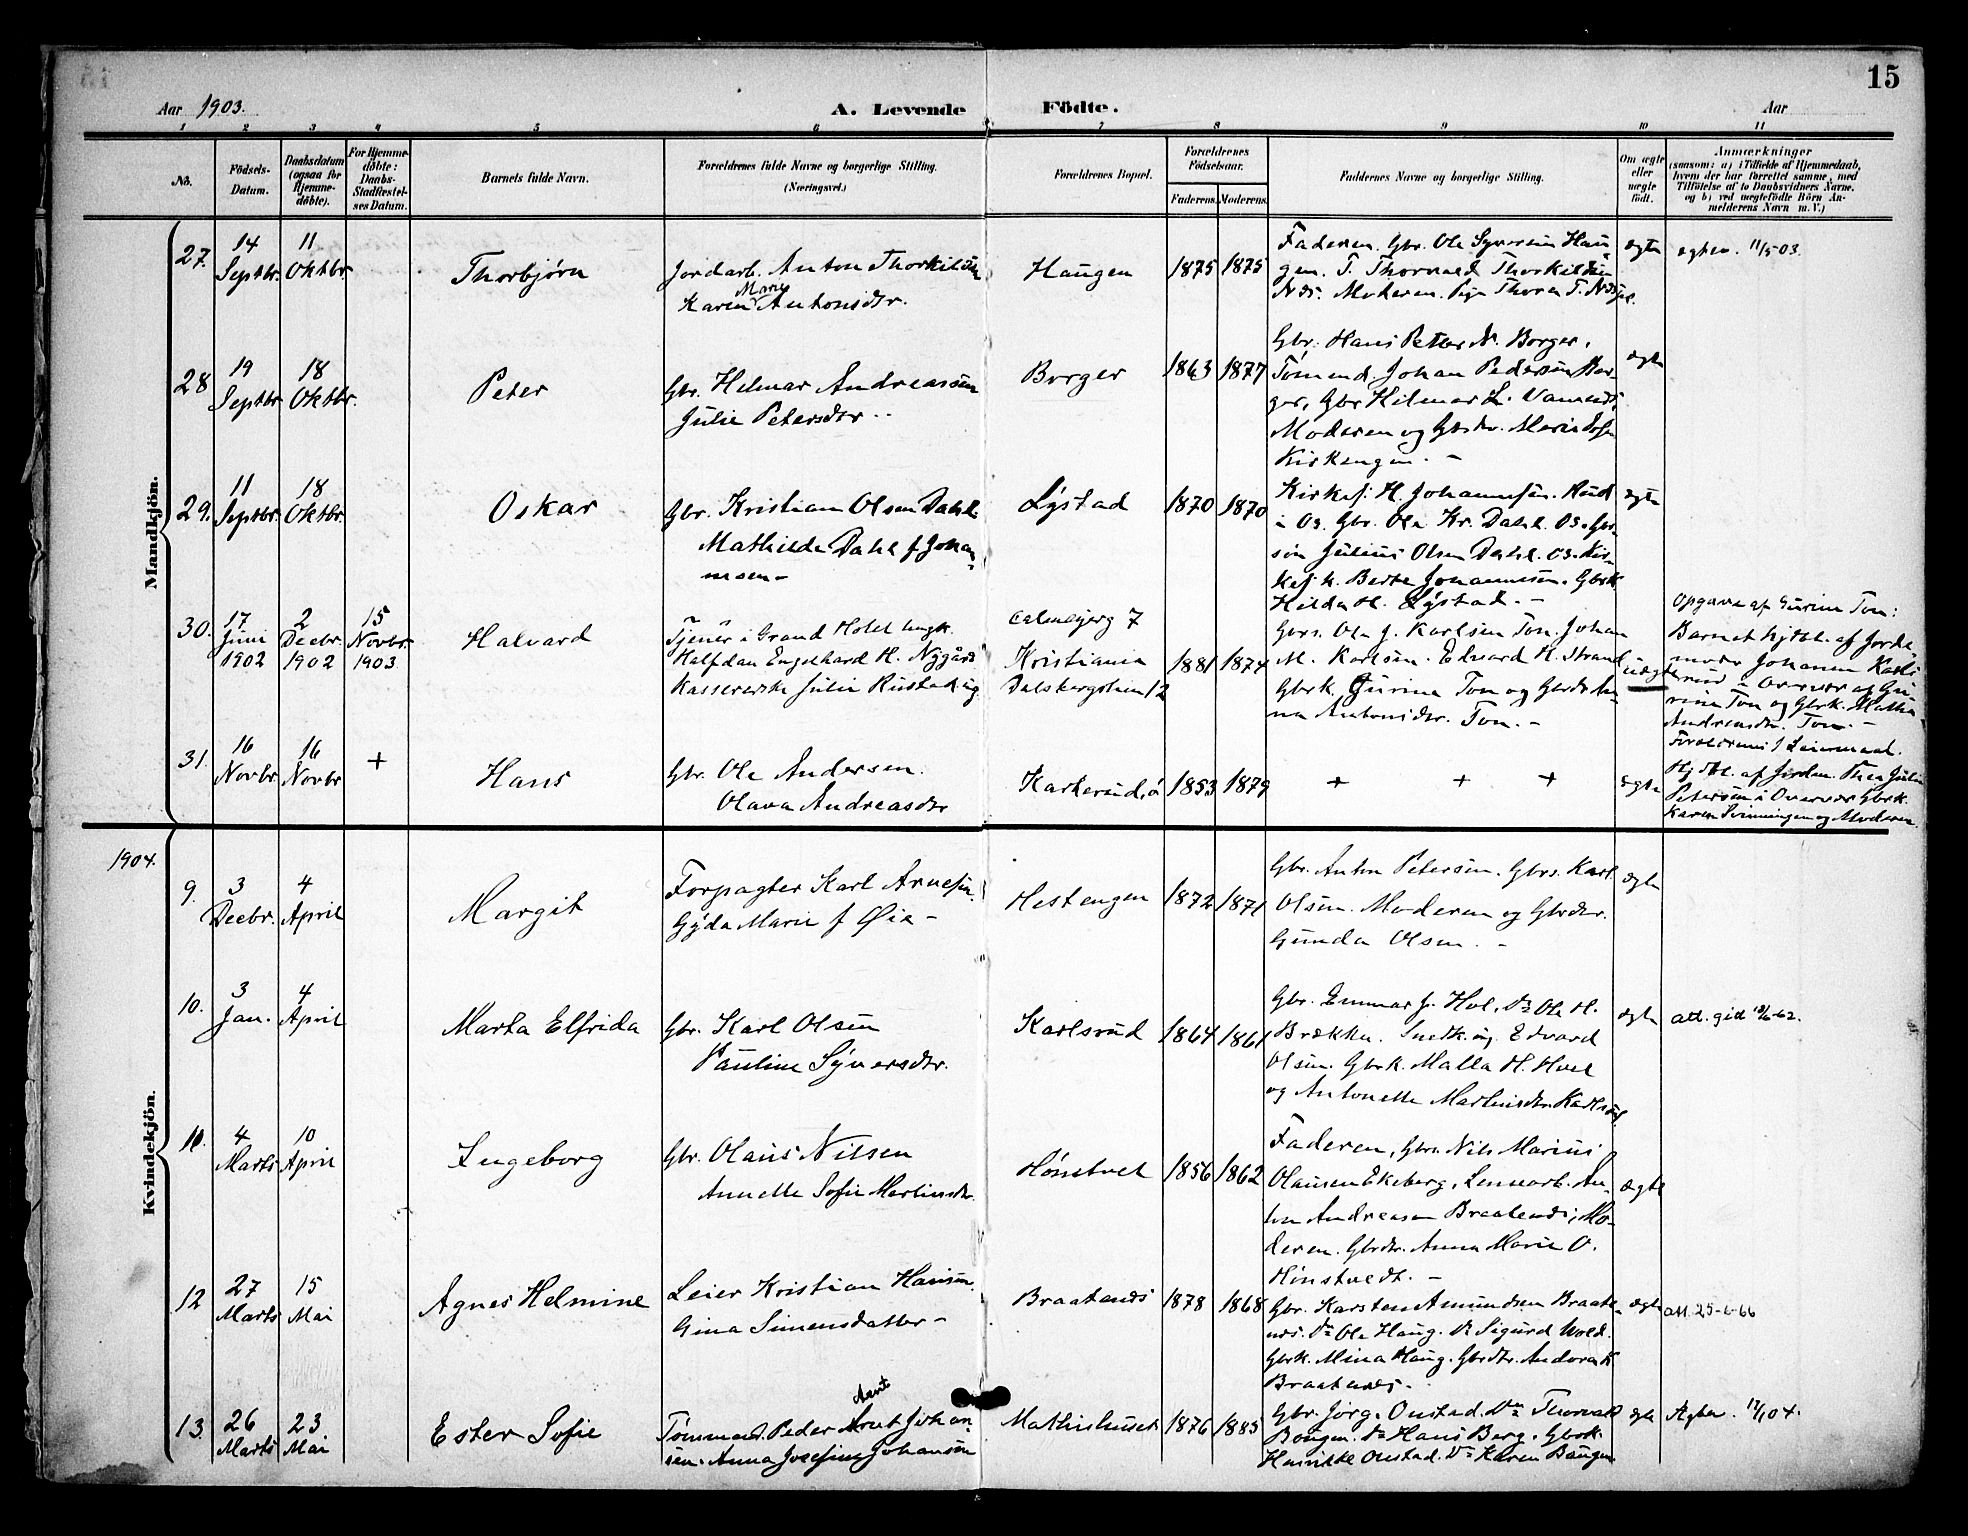 15
Aar 1903.
A. Levende
Födte.
Aar
1 2 3 4 5 6 7 8 9 10 11
No.
Födsels-
Datum.
Daabsdatum
(ogsaa for
Hjemme-
døbte).
For Hjemme-
døbte:
Daabs-
Stadfæstel-
ses Datum.
Barnets fulde Navn.
Forældrenes fulde Navne og borgerlige Stilling.
(Næringsvei.)
Forældrenes Bopæl.
Forældrenes
Födselsaar.
Faderens. Moderens.
Faddernes Navne og borgerlige Stilling.
Om ægte
eller
uægte
födt.
Anmærkninger
(saasom: a) i Tilfælde af Hjemmedaab,
hvem der har forrettet samme, med
Tilföielse af to Daabsvidners Navne.
og b) ved uægtefödte Börn An-
melderens Navn m. V.)
Mandkjön.
27.
14
Septbr.
11
Oktbr.
Thorbjørn
Jordarb. Anton Thorkilds
Marie
Karen Antonsdtr.
Haugen
1875
1875
Faderen. Gbr. Ole Syversen Hau-
gen. T. Thorvald Thorkildsen
Næs. Moderen. Pige Thora T. Næs
ægte
11/5 03.
28
19
Septbr.
18
Oktbr.
Peter
Gbr. Helmar Andreassen
Julie Petersdtr.
Borger
1863
1877
Gbr. Hans Peter N. Borger,
Tømmd. Johan Pedersen Bor-
ger, Gbr Hilmar L.
Moderen og Gbdtr. Marie
Kirkengen. -
ægte
29.
11
Septbr.
18
Oktbr.
Oskar
Gbr. Kristian Olsen Dahl
Mathilde Dahl f Johan-
nesen-
Lystad
1870
1870
Kirkesj. H. Johannesen. Rud
i Os. Gbr. Ole Kr. Dahl. Os. Gbr-
søn Julius Olsen Dahl. Os. Kir-
kesj. k. Berte Johannesen. Gbrk.
Hilda H. Lystad. -
ægte
30.
17
Juni
1902
2
Decbr.
1902
15
Novbr.
1903
Halvard
Tjener i Grand Hotel ungk.
Halfdan Engelhard H. Nygård
Kassererske Julie Rustad ug
Calmeyerg 7
Kristiania
Dalsbergstien 12
1881
1874
Gbrs. Ole J. Karlsen Ton. Johan
M. Karlsen. Edvard H. Strand
Gbrk. Gurine Ton og Gbrdtr. An-
na Antonsdtr. Ton. -
uægte
Opgave af Gurine Ton:
Barnet hjdbt. af Jorde-
moder Johanne Karls-
rud i Overvær af Gu-
rine Ton og Gbrk. Mathea
Andreasdtr. Ton. -
Forældrenes 1 Leiermaal.
31.
16
Novbr.
16
Novbr.
+
Hans
Gbr. Ole Andersen.
Olava Andreasdtr
Karterudø
1853
1879
+ + +
ægte
Hjdbt. af Jordm. Thea Julie
Petersen i Overvær Gbrk.
Karen Svinningen og Moderen.
Kvindekjön.
1904.
9.
3
Decbr.
4
April
Margit
Forpagter Karl Arnesen.
Gyda Marie f Øie -
Hestengen
1872
1871
Gbr. Anton Petersen. Gbrs. Karl
Olsen. Moderen og Gbrdtr.
Gunda Olsen. -
ægte
10.
3
Jan.
4
April
Marta Elfrida
Gbr. Karl Olsen
Pauline Syversdtr.
Karlsrud
1864
1861
Gbr. Emmar J. Hol, Do Ole H.
Brække. Snedk. ug. Edvard
Olsen. Gbrk. Malla H. Hvel
og Antonette Martinsdtr. Karlsrud
ægte
att. gitt 18/6-62.
11.
4
Marts
10
April
Ingeborg
Gbr. Olaus Nilsen
Annette Sofie Martinsdtr.
Hønstvet
1856
1862
Faderen, Gbrs. Nils Marius
Olausen Ekeberg, Lennarb. An-
ton Andreasen Braatends, Mo-
deren. Gbrdtr. Anna Marie O.
Hønstvedt. -
ægte
12
27
Marts
15
Mai
Agnes Helmine
Leier Kristian Hansen.
Gina Simensdatter -
Braatends
1878
1868
Gbr. Karsten Amundsen Braate-
nds. Do Ole Haug. Do Sigurd Wold.
Gbrk. Mina Haug. Gbrdtr. Andora K
Braatends.
ægte
att. 25-6-66
13.
26
Marts
23
Mai
Ester Sofie
Aant
Tømmerm. Peder Arnt Johan-
sen. Anna Josefine Johansen
Mathishuset
1876
1885
Gbr. Jørg. Onstad. Do Thorvald
Bongen. Do Hans Berg. Gbrk.
Henrikke Onstad. Do Karen Baugen
ægte
Ægtev. 17/1 04.